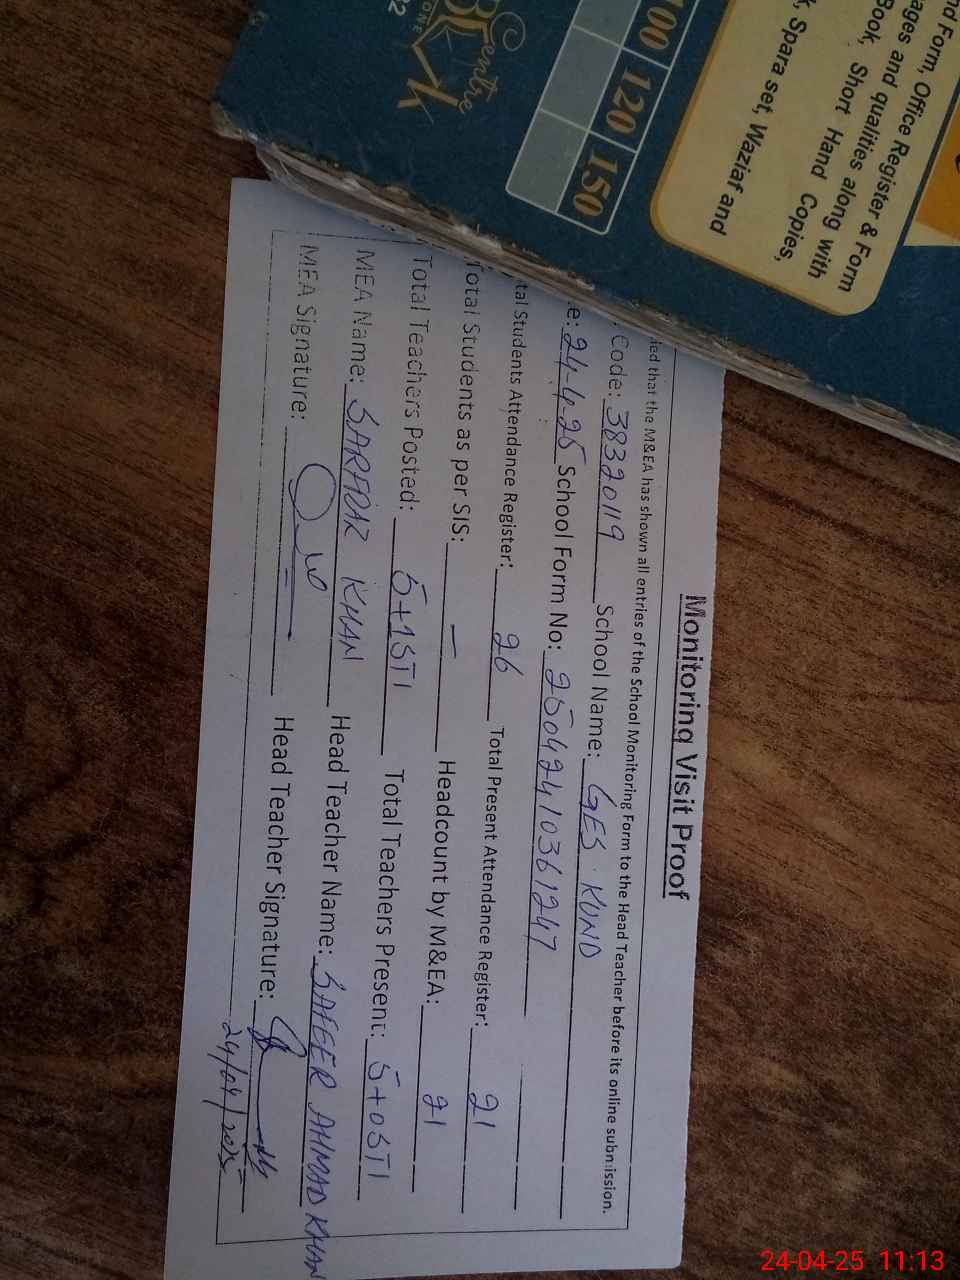 nd Form, Office Register & Form
ages and qualities along with
Book, Short Hand Copies,
Spara set, Waziaf and
100 120 150
Centre
Monitoring Visit Proof
that the M&EA has shown all entries of the School Monitoring Form to the Head Teacher before its online submission.
Code: 38320119 School Name: GES. KUND
e: 24-4-25 School Form No: 25042410361247
tal Students Attendance Register: 26 Total Present Attendance Register: 21
Total Students as per SIS: — Headcount by M&EA: 21
Total Teachers Posted: 5+1STI Total Teachers Present: 5+0STI
MEA Name: SARFARAZ KHAN Head Teacher Name: SAFEER AHMAD KHAN
MEA Signature: Head Teacher Signature:
24/04/2025
24-04-25 11:13